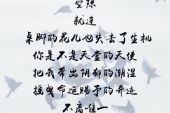 空隙
就连
桌脚的花儿也失去了生机
你是不是天堂的天使
把我带出阴郁的潮湿
摇曳命运赐予的奔逃
不离唯一